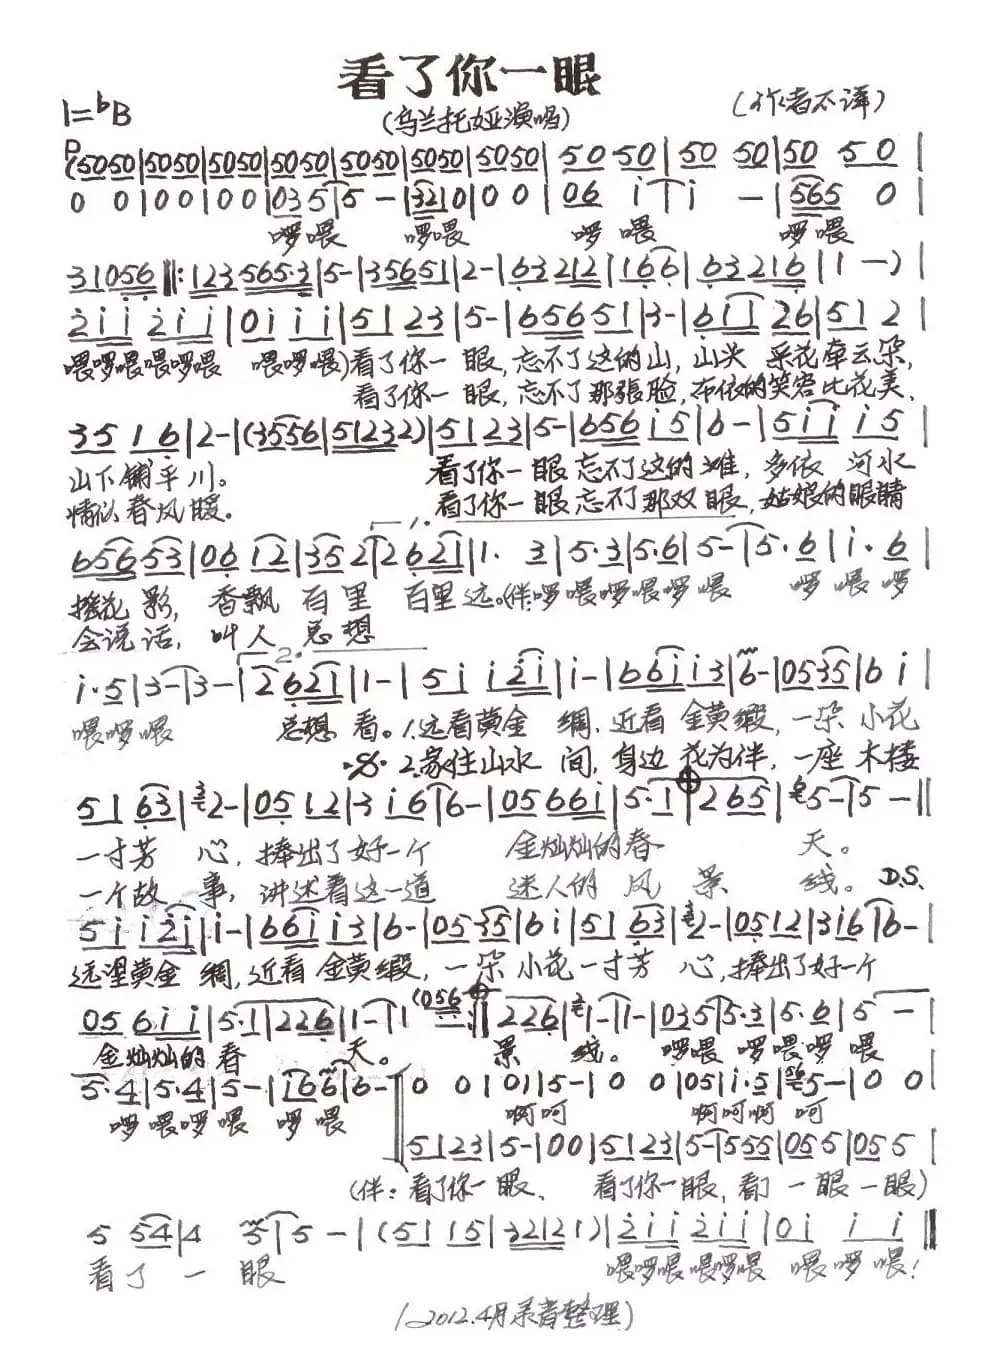 看了你一眼
1=bB
(乌兰托娅演唱)
(作者不详)
P
(5050|5050|5050|5050|5050|5050|5050|50 50|50 50|50 50|
0 0|00|00|035|5-|320|00|06 i|i -|565 0|
啰喂 啰喂 啰喂 啰喂
31056‖:123565·3|5-|35651|2-|63212|166|63216|1-)|
2ii 2ii|0iii|5123|5-|65651|3-|6i1 26|512|
喂啰喂喂啰喂 喂啰喂)看了你一眼,忘不了这的山,山头 采花牵云朵,
看了你一眼,忘不了那張脸,布依的笑容比花美,
3516|2-|(3556|51232)|5123|5-|656i5|6-|5ii i5|
山下铺平川。 看了你一眼忘不了这的滩,多依 河水
情似春风暖。 看了你一眼忘不了那双眼,姑娘的眼睛
1.
65653|0612|352|2621|1· 3|5·3|5·6|5-|5·6|i·6|
摇花影, 香飘百里 百里远。(伴:啰喂啰喂啰喂 啰喂啰
会说话, 叫人总想
2.
i·5|3-|3-|2621|1-|5i i2i|i-|66ii3|6-|0535|6i|
喂啰喂 总想看。1.远看黄金 绸,近看 金黄缎,一朵小花
2.家住山水 间,身边 花为伴,一座木楼
5163|2-|0512|3i6|6-|0566i|5·1|265|5-|5-‖
一寸芳 心,捧出了好一个 金灿灿的春 天。
一个故 事,讲述着这一道 迷人的风景 线。 D.S.
5i i2i|i-|66ii3|6-|0535|6i|5163|2-|0512|3i6|6-|
远望黄金 绸,近看 金黄缎,一朵小花一寸芳 心,捧出了好一个
056ii|5·1|226|1-|1 (056 -:‖226|1-|1-|035|5·3|5·6|5-|
金灿灿的春 天。 景 线。 啰喂 啰喂啰喂
5·4|5·4|5-|i66|6-|0 0|01|5-|0 0|05|i·5|5-|00|
啰喂啰喂 啰喂 啊呵 啊呵啊 呵
5123|5-|00|5123|5-|555|055|055|
(伴:看了你一眼、 看了你一眼,看了 一眼一眼)
5 54|4 5|5-|(51 15|3212 1)|2ii 2ii|0i i i‖
看了一 眼 喂啰喂喂啰喂 喂啰喂!
(2012.4月录音整理)